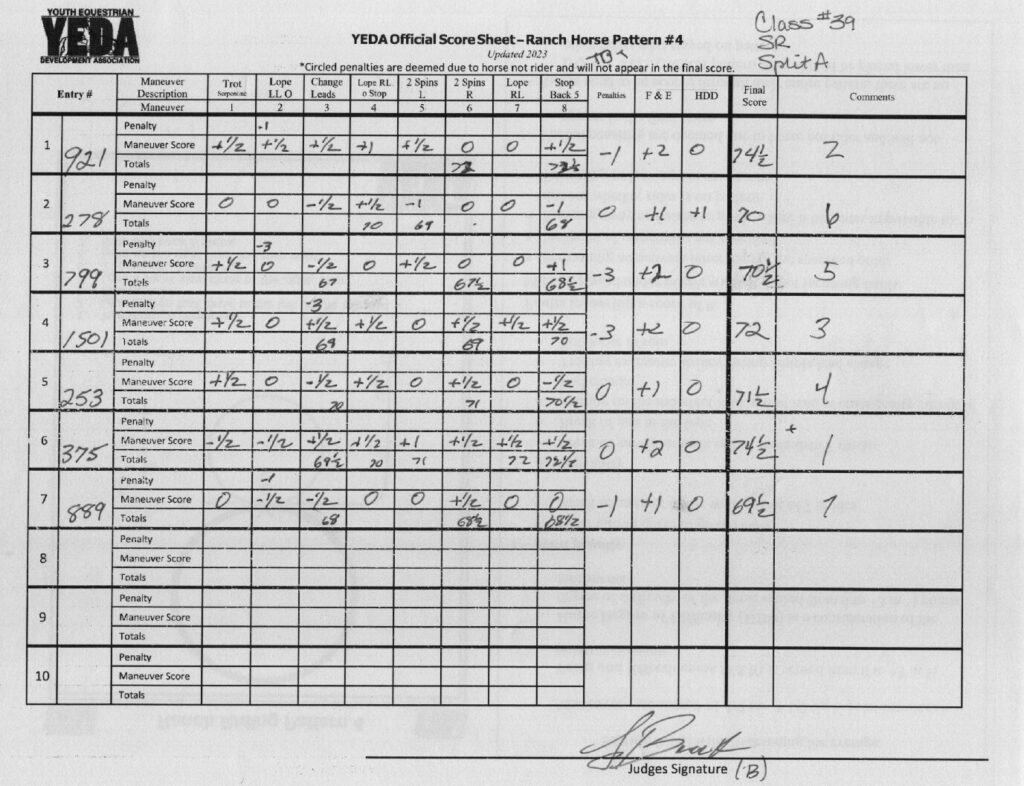 YOUTH EQUESTRIAN
YEDA
DEVELOPMENT ASSOCIATION
Class #39
SR
Split A
YEDA Official Score Sheet – Ranch Horse Pattern #4
Updated 2023
*Circled penalties are deemed due to horse not rider and will not appear in the final score.
Entry # Maneuver Description Trot Serpentine Lope LL O Change Leads Lope RL o Stop 2 Spins L 2 Spins R Lope RL Stop Back 5 Penalties F & E HDD Final Score Comments
Maneuver 1 2 3 4 5 6 7 8
1 921
Penalty -1
Maneuver Score +1/2 +1/2 +1/2 +1 +1/2 0 0 +1/2 -1 +2 0 74 1/2 2
Totals 72 72 1/2
2 278
Penalty
Maneuver Score 0 0 -1/2 +1/2 -1 0 0 -1 0 +1 +1 70 6
Totals 70 69 68
3 799
Penalty -3
Maneuver Score +1/2 0 -1/2 0 +1/2 0 0 +1 -3 +2 0 70 1/2 5
Totals 67 67 1/2 68 1/2
4 1501
Penalty -3
Maneuver Score +1/2 0 +1/2 +1/2 0 +1/2 +1/2 +1/2 -3 +2 0 72 3
Totals 69 69 70
5 253
Penalty
Maneuver Score +1/2 0 -1/2 +1/2 0 +1/2 0 -1/2 0 +1 0 71 1/2 4
Totals 70 71 70 1/2
6 375
Penalty
Maneuver Score -1/2 -1/2 +1/2 +1/2 +1 +1/2 +1/2 +1/2 0 +2 0 74 1/2 + 1
Totals 69 1/2 70 71 72 72 1/2
7 889
Penalty -1
Maneuver Score 0 -1/2 -1/2 0 0 +1/2 0 0 -1 +1 0 69 1/2 7
Totals 68 68 1/2 68 1/2
8
Penalty
Maneuver Score
Totals
9
Penalty
Maneuver Score
Totals
10
Penalty
Maneuver Score
Totals
Judges Signature (B)